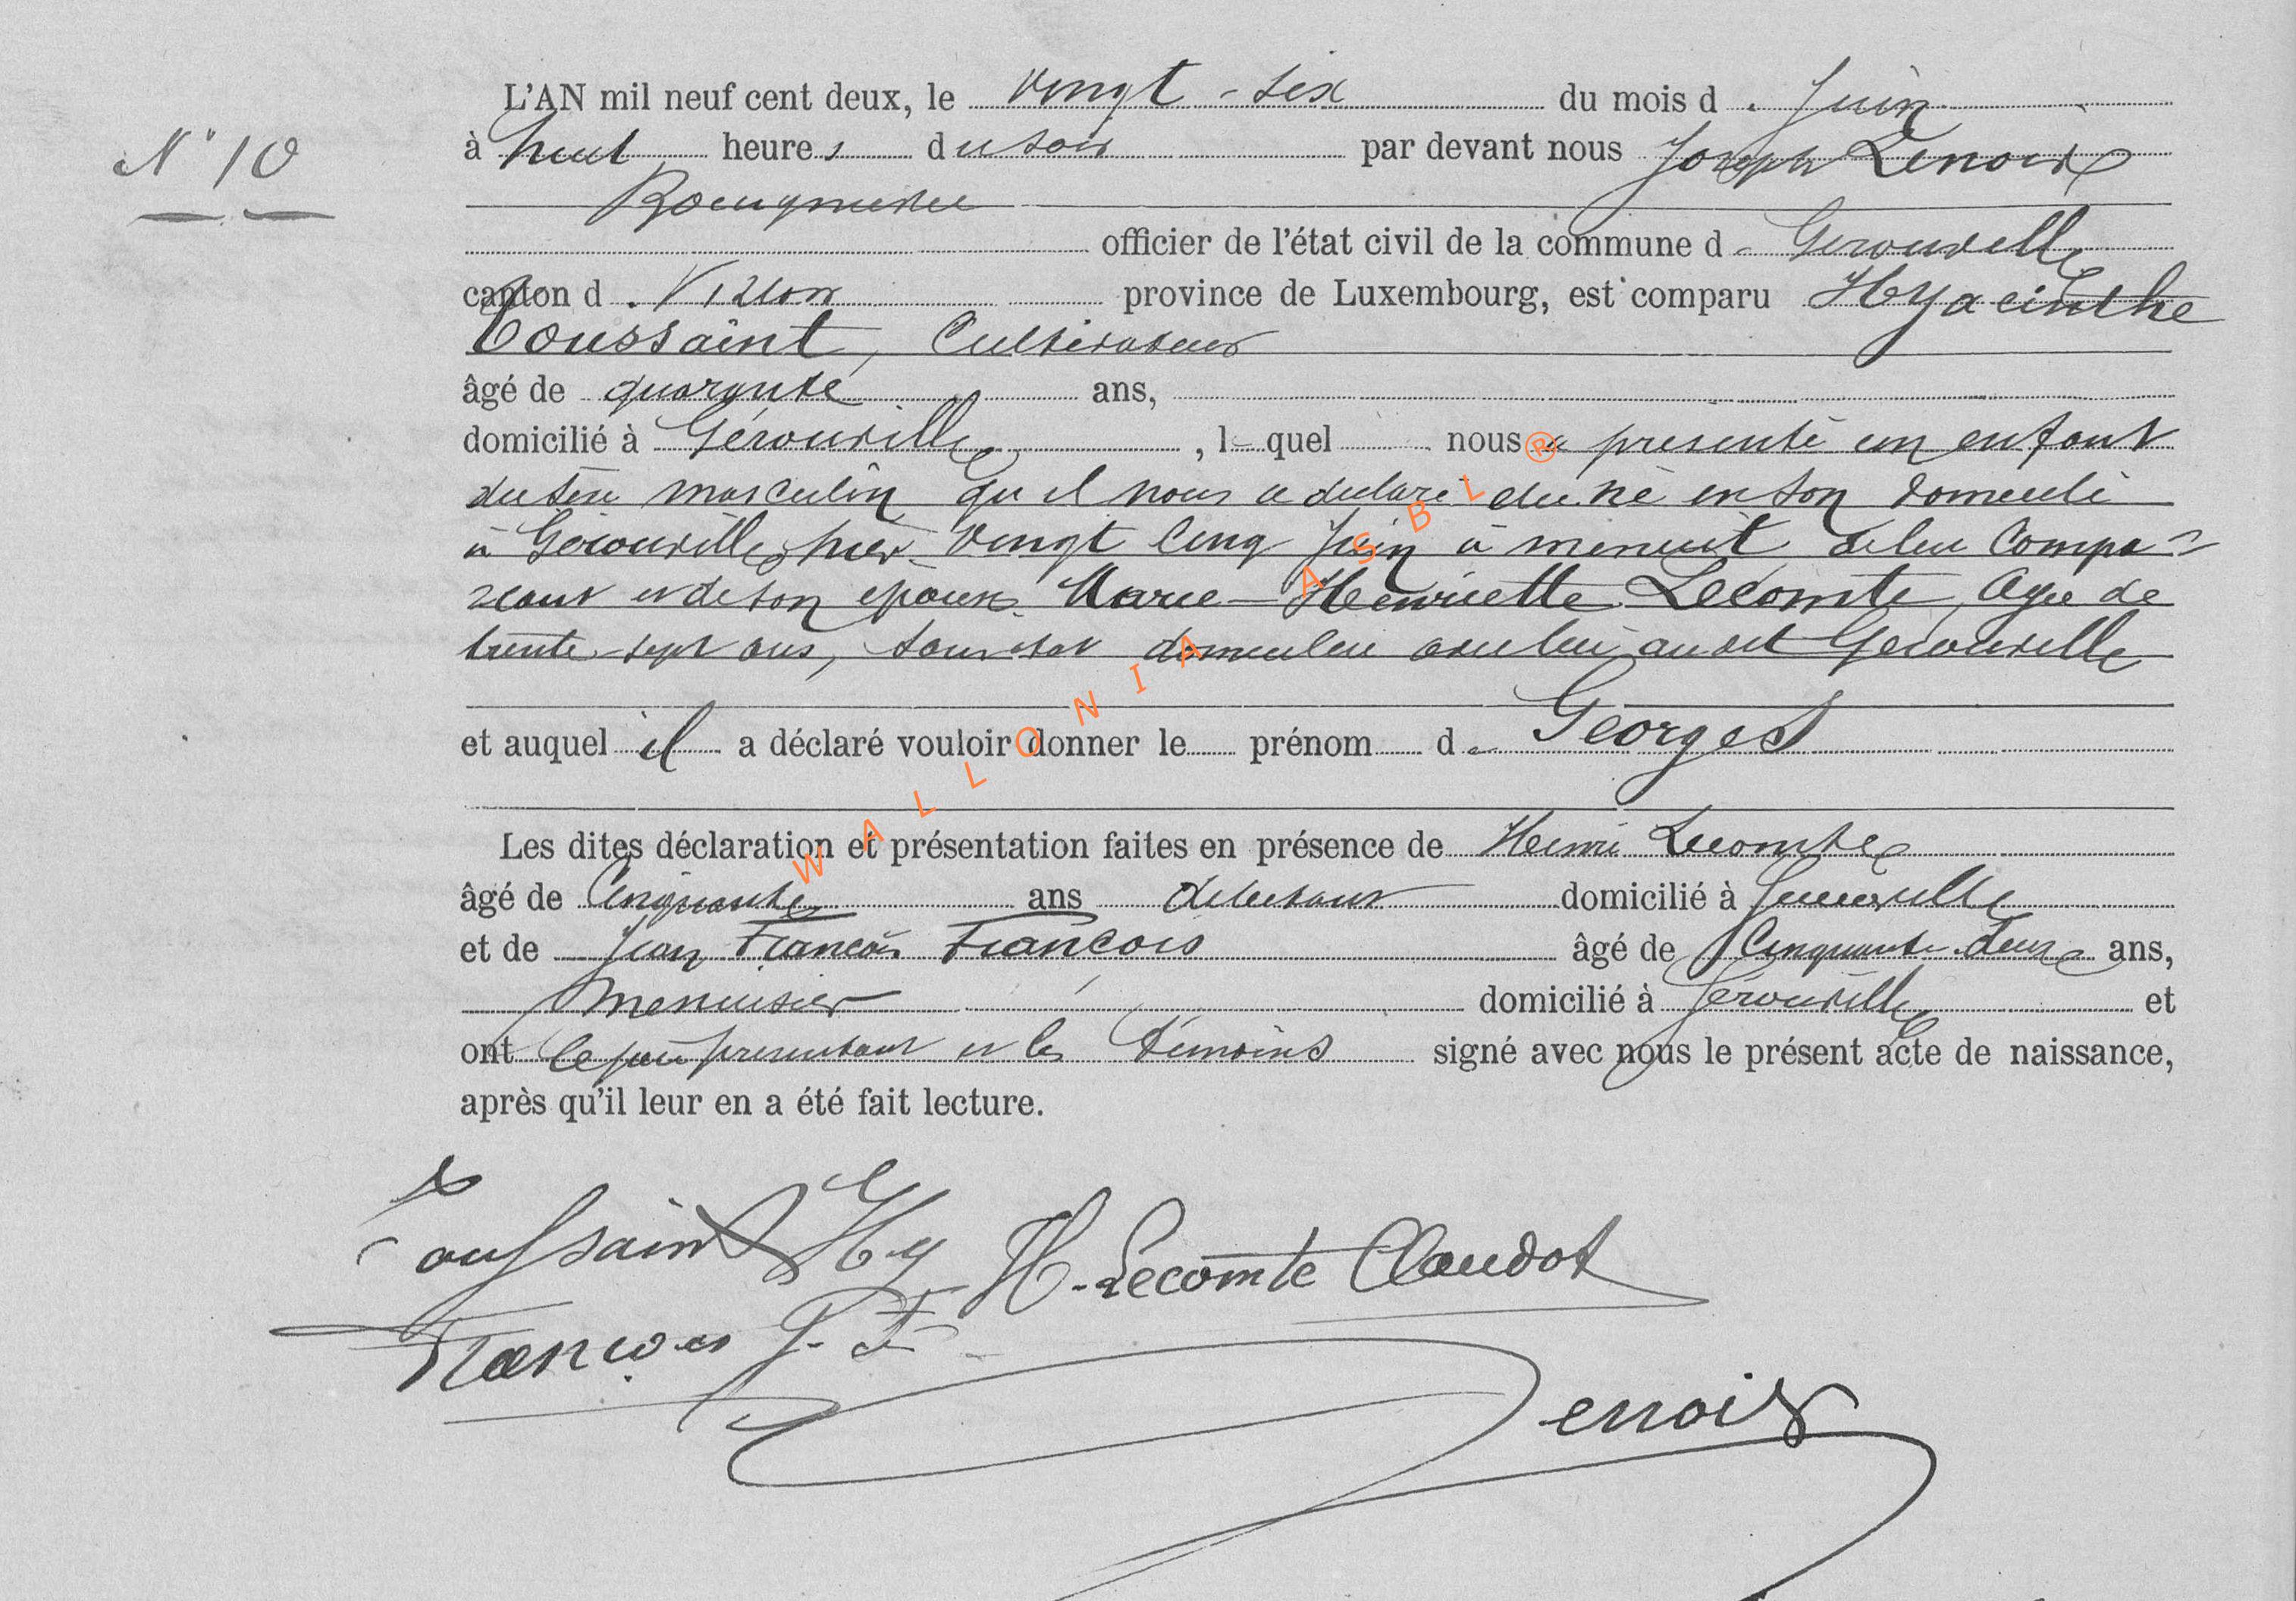 L'AN mil neuf cent deux, le vingt-six du mois d. Juin
N° 10
à huit heures du soir par devant nous Joseph Lenoir
Bourgmestre
officier de l'état civil de la commune d. Gérouville
canton d. Virton province de Luxembourg, est comparu Hyacinthe
Toussaint, Cultivateur
âgé de quarante ans,
domicilié à Gérouville, lequel nous a présenté un enfant
du sexe masculin qu'il nous a déclaré être né en son domicile
à Gérouville, hier vingt cinq Juin à minuit, de lui compa=
rant et de son épouse Marie-Henriette Lecomte, âgée de
trente-sept ans, sans état domiciliée avec lui au dit Gérouville
et auquel il a déclaré vouloir donner le prénom de Georges
Les dites déclaration et présentation faites en présence de Henri Lecomte
âgé de Cinquante ans domicilié à
et de Jean François François âgé de Cinquante-deux ans,
menuisier domicilié à Gérouville et
ont le père présentant et les témoins signé avec nous le présent acte de naissance,
après qu'il leur en a été fait lecture.
Toussaint Hy H. Lecomte Claudot
François J. F.
Lenoir
WALLONIA ASBL ®